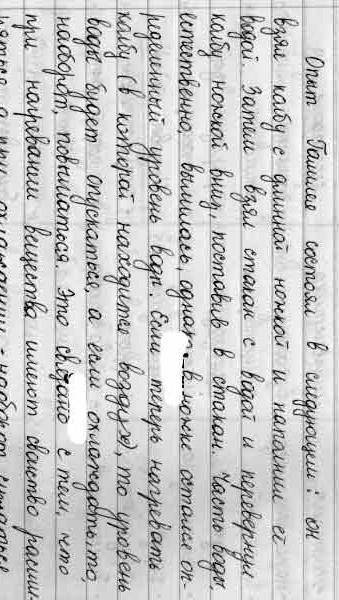 Опыт Галилея состоял в следующем: он
взял колбу с длинной ножкой и наполнил её
водой. Затем взял стакан с водой и перевернул
колбу ножкой вниз, поставив в стакан. Часть воды,
естественно, вылилась, однако в ножке остался оп-
ределенный уровень воды. Если теперь нагревать
колбу (в которой находится воздух), то уровень
воды будет опускаться, а если охлаждать, то,
наоборот, повышаться. Это связано с тем, что
при нагревании вещества имеют свойство расши-
ряться, а при охлаждении - наоборот сжиматься